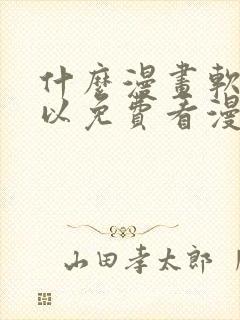 什麼漫畫軟
以免費看漫
山田孝太郎